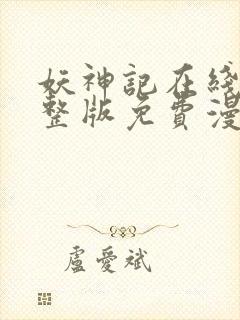 妖神記在綫
整版免費漫
盧愛斌